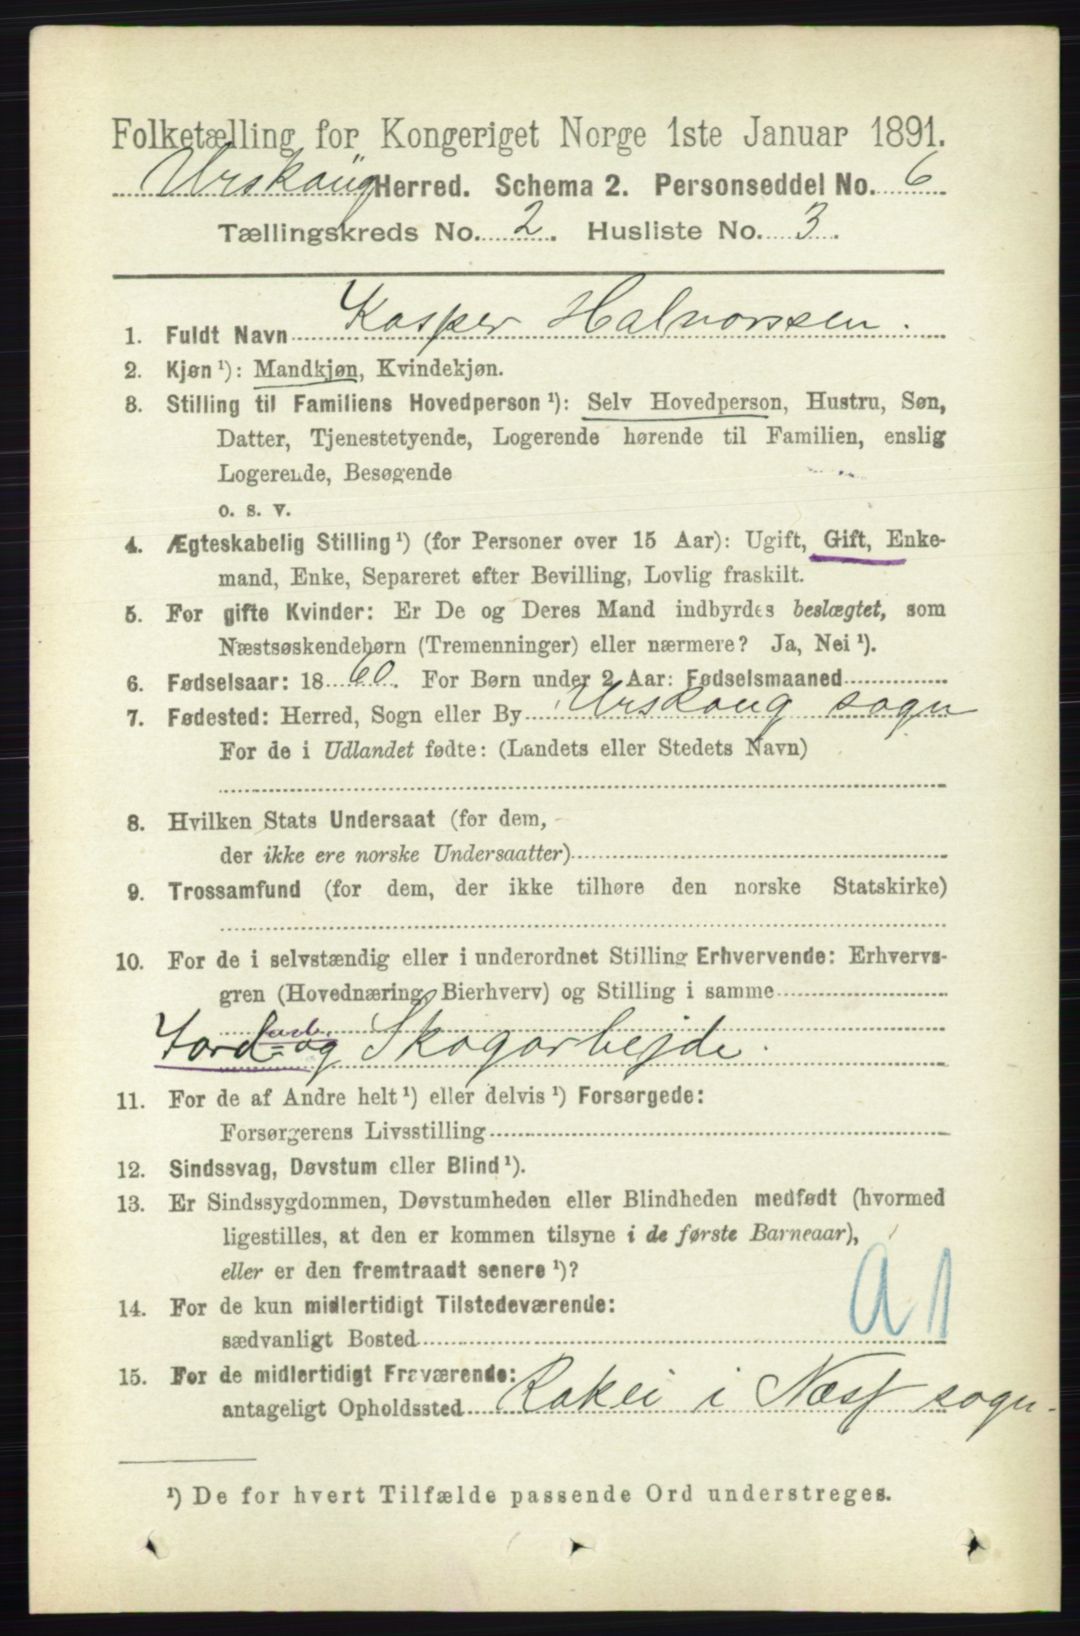 Folketælling for Kongeriget Norge 1ste Januar 1891.
Urskoug Herred. Schema 2. Personseddel No. 6
Tællingskreds No. 2. Husliste No. 3.
1. Fuldt Navn Kasper Halvorssen.
2. Kjøn ¹): Mandkjøn, Kvindekjøn.
3. Stilling til Familiens Hovedperson ¹): Selv Hovedperson, Hustru, Søn,
Datter, Tjenestetyende, Logerende hørende til Familien, enslig
Logerende, Besøgende
o. s. v.
4. Ægteskabelig Stilling ¹) (for Personer over 15 Aar): Ugift, Gift, Enke-
mand, Enke, Separeret efter Bevilling, Lovlig fraskilt.
5. For gifte Kvinder: Er De og Deres Mand indbyrdes beslægtet, som
Næstsøskendebørn (Tremenninger) eller nærmere? Ja, Nei ¹).
6. Fødselsaar: 18 60. For Børn under 2 Aar: Fødselsmaaned
7. Fødested: Herred, Sogn eller By Urskoug sogn
For de i Udlandet fødte: (Landets eller Stedets Navn)
8. Hvilken Stats Undersaat (for dem,
der ikke ere norske Undersaatter)
9. Trossamfund (for dem, der ikke tilhøre den norske Statskirke)
10. For de i selvstændig eller i underordnet Stilling Erhvervende: Erhvervs-
gren (Hovednæring, Bierhverv) og Stilling i samme
Jord- og Skogarbejde.
11. For de af Andre helt ¹) eller delvis ¹) Forsørgede:
Forsørgerens Livsstilling
12. Sindssvag, Døvstum eller Blind ¹).
13. Er Sindssygdommen, Døvstumheden eller Blindheden medfødt (hvormed
ligestilles, at den er kommen tilsyne i de første Barneaar),
eller er den fremtraadt senere ¹)?
14. For de kun midlertidigt Tilstedeværende:
sædvanligt Bosted
15. For de midlertidigt Fraværende:
antageligt Opholdssted Rakei i Næss sogn.
¹) De for hvert Tilfælde passende Ord understreges.